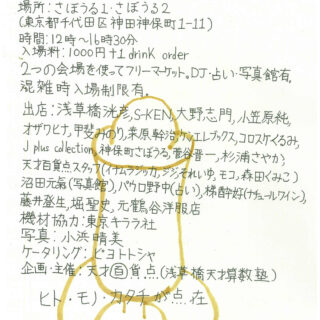 場所:さぼうる1・さぼうる2
(東京都千代田区神田神保町1-11)
時間:12時〜16時30分
入場料:1000円+1 drinK order
2つの会場を使ってフリーマーケット,DJ・占い・写真館有,
混雑時入場制限有.
出店:浅草橋洸彦,S-KEN,大野志門,小笠原純,
オザワヒナ,甲斐みのり,栗原幹治,ケンエレブックス,コロスケくるみ,
J plus collection,神保町さぼうる,菅谷晋一,杉浦さやか,
天才百貨点スタッフ(イムラジッカ,ジジ,それいゆ,モコ,森田くみこ)
沼田元氣(写真館),パウロ野中(占い),梯酔好(ナチュールワイン),
藤井登生,堀聖史,元鶴谷洋服店
機材協力:東京キララ社
写真:小浜晴美
ケータリング:ピヨトトシャ
企画・主催:天才百貨点(浅草橋天才算数塾)
ヒト・モノ・カタチが点在